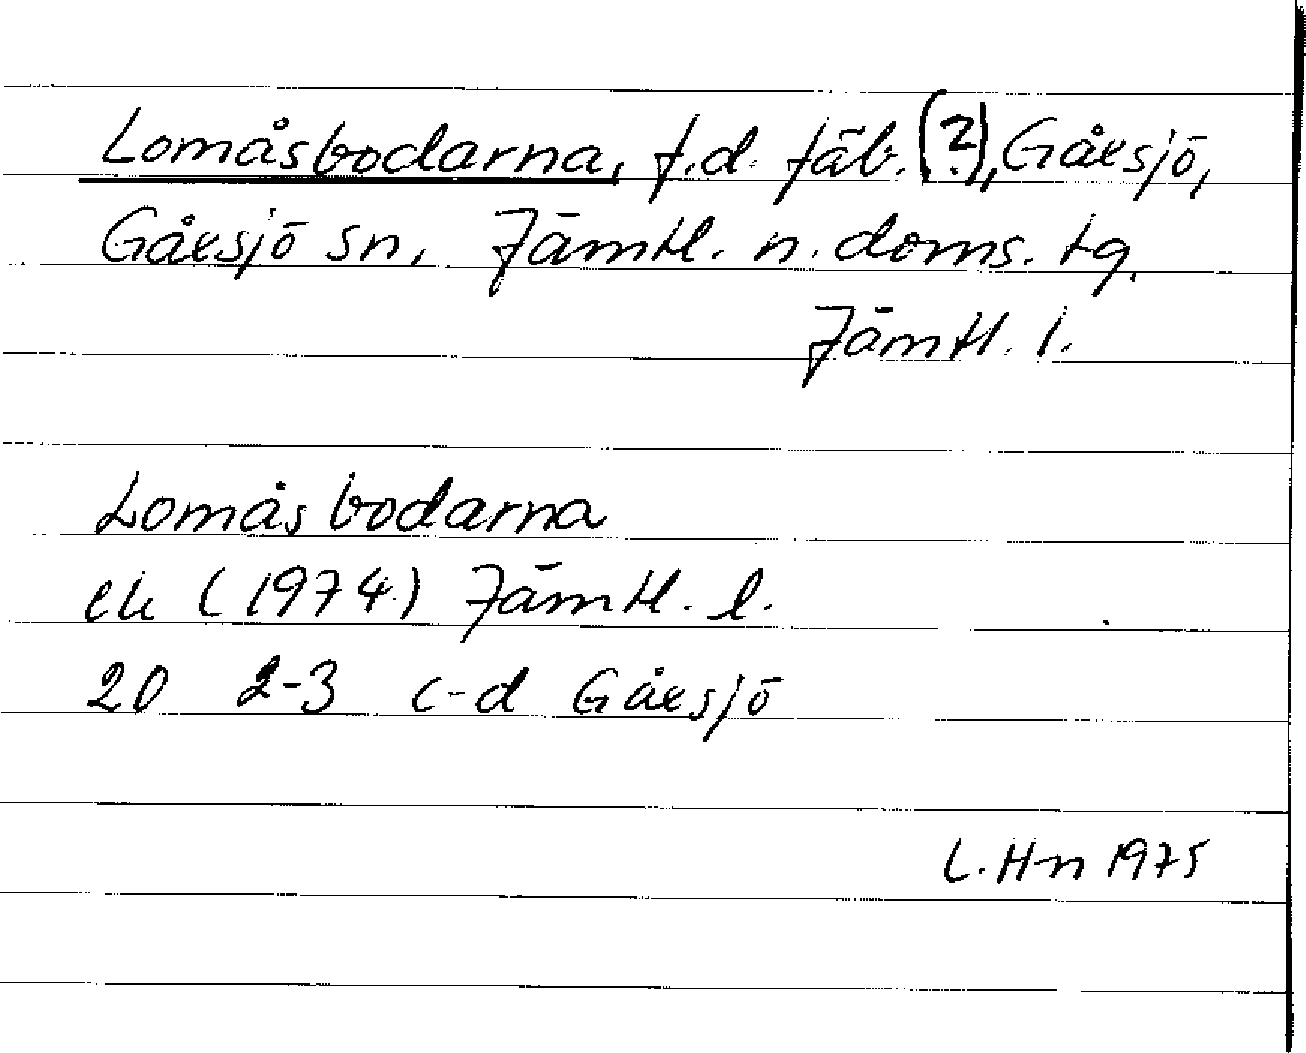 Lomåsbodarna, f.d. fäb. (?), Gåxsjö,
Gåxsjö sn, Jämtl. n. doms. tg.
Jämtl. l.
Lomåsbodarna
ek (1974) Jämtl. l.
20 2-3 c-d Gåxsjö
L. H-n 1975